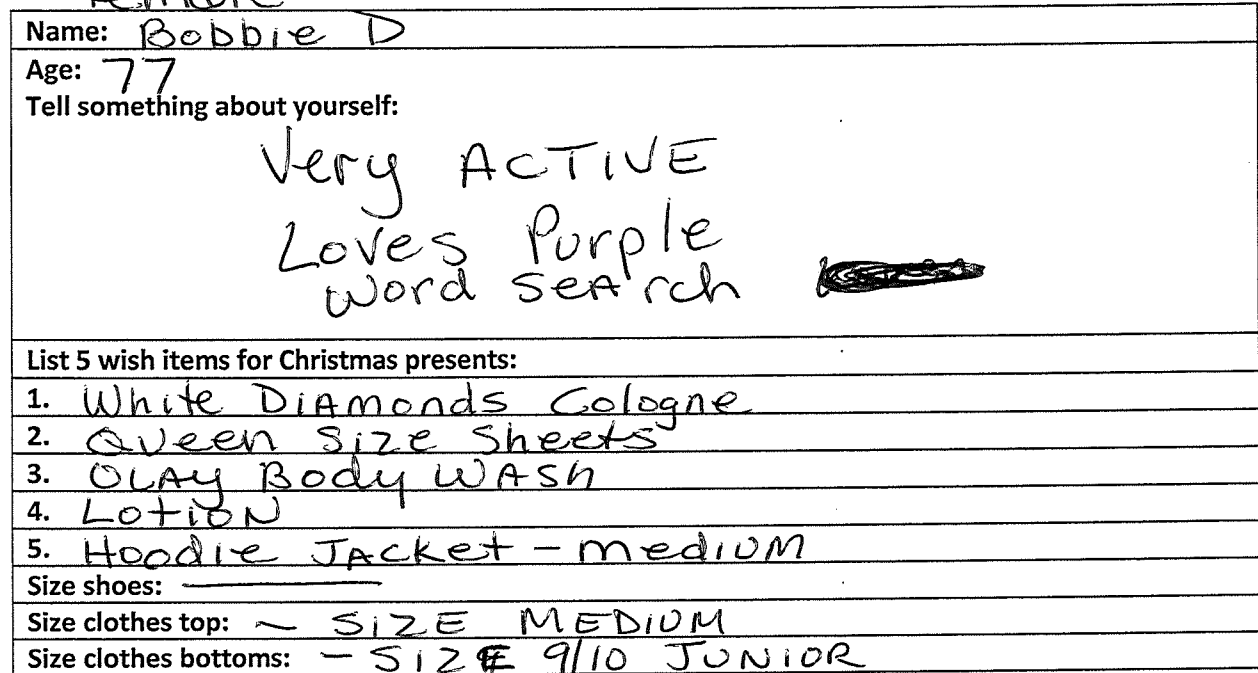 Female
Name: Bobbie D
Age: 77
Tell something about yourself:
Very ACTIVE
Loves Purple
Word SEArch
List 5 wish items for Christmas presents:
1. White DiAmonds Cologne
2. Queen Size Sheets
3. OLAy Body WASh
4. LotioN
5. Hoodie JAcket - mediUM
Size shoes: ———
Size clothes top: ~ SiZE MEDIUM
Size clothes bottoms: - SIZE 9/10 JUNiOR